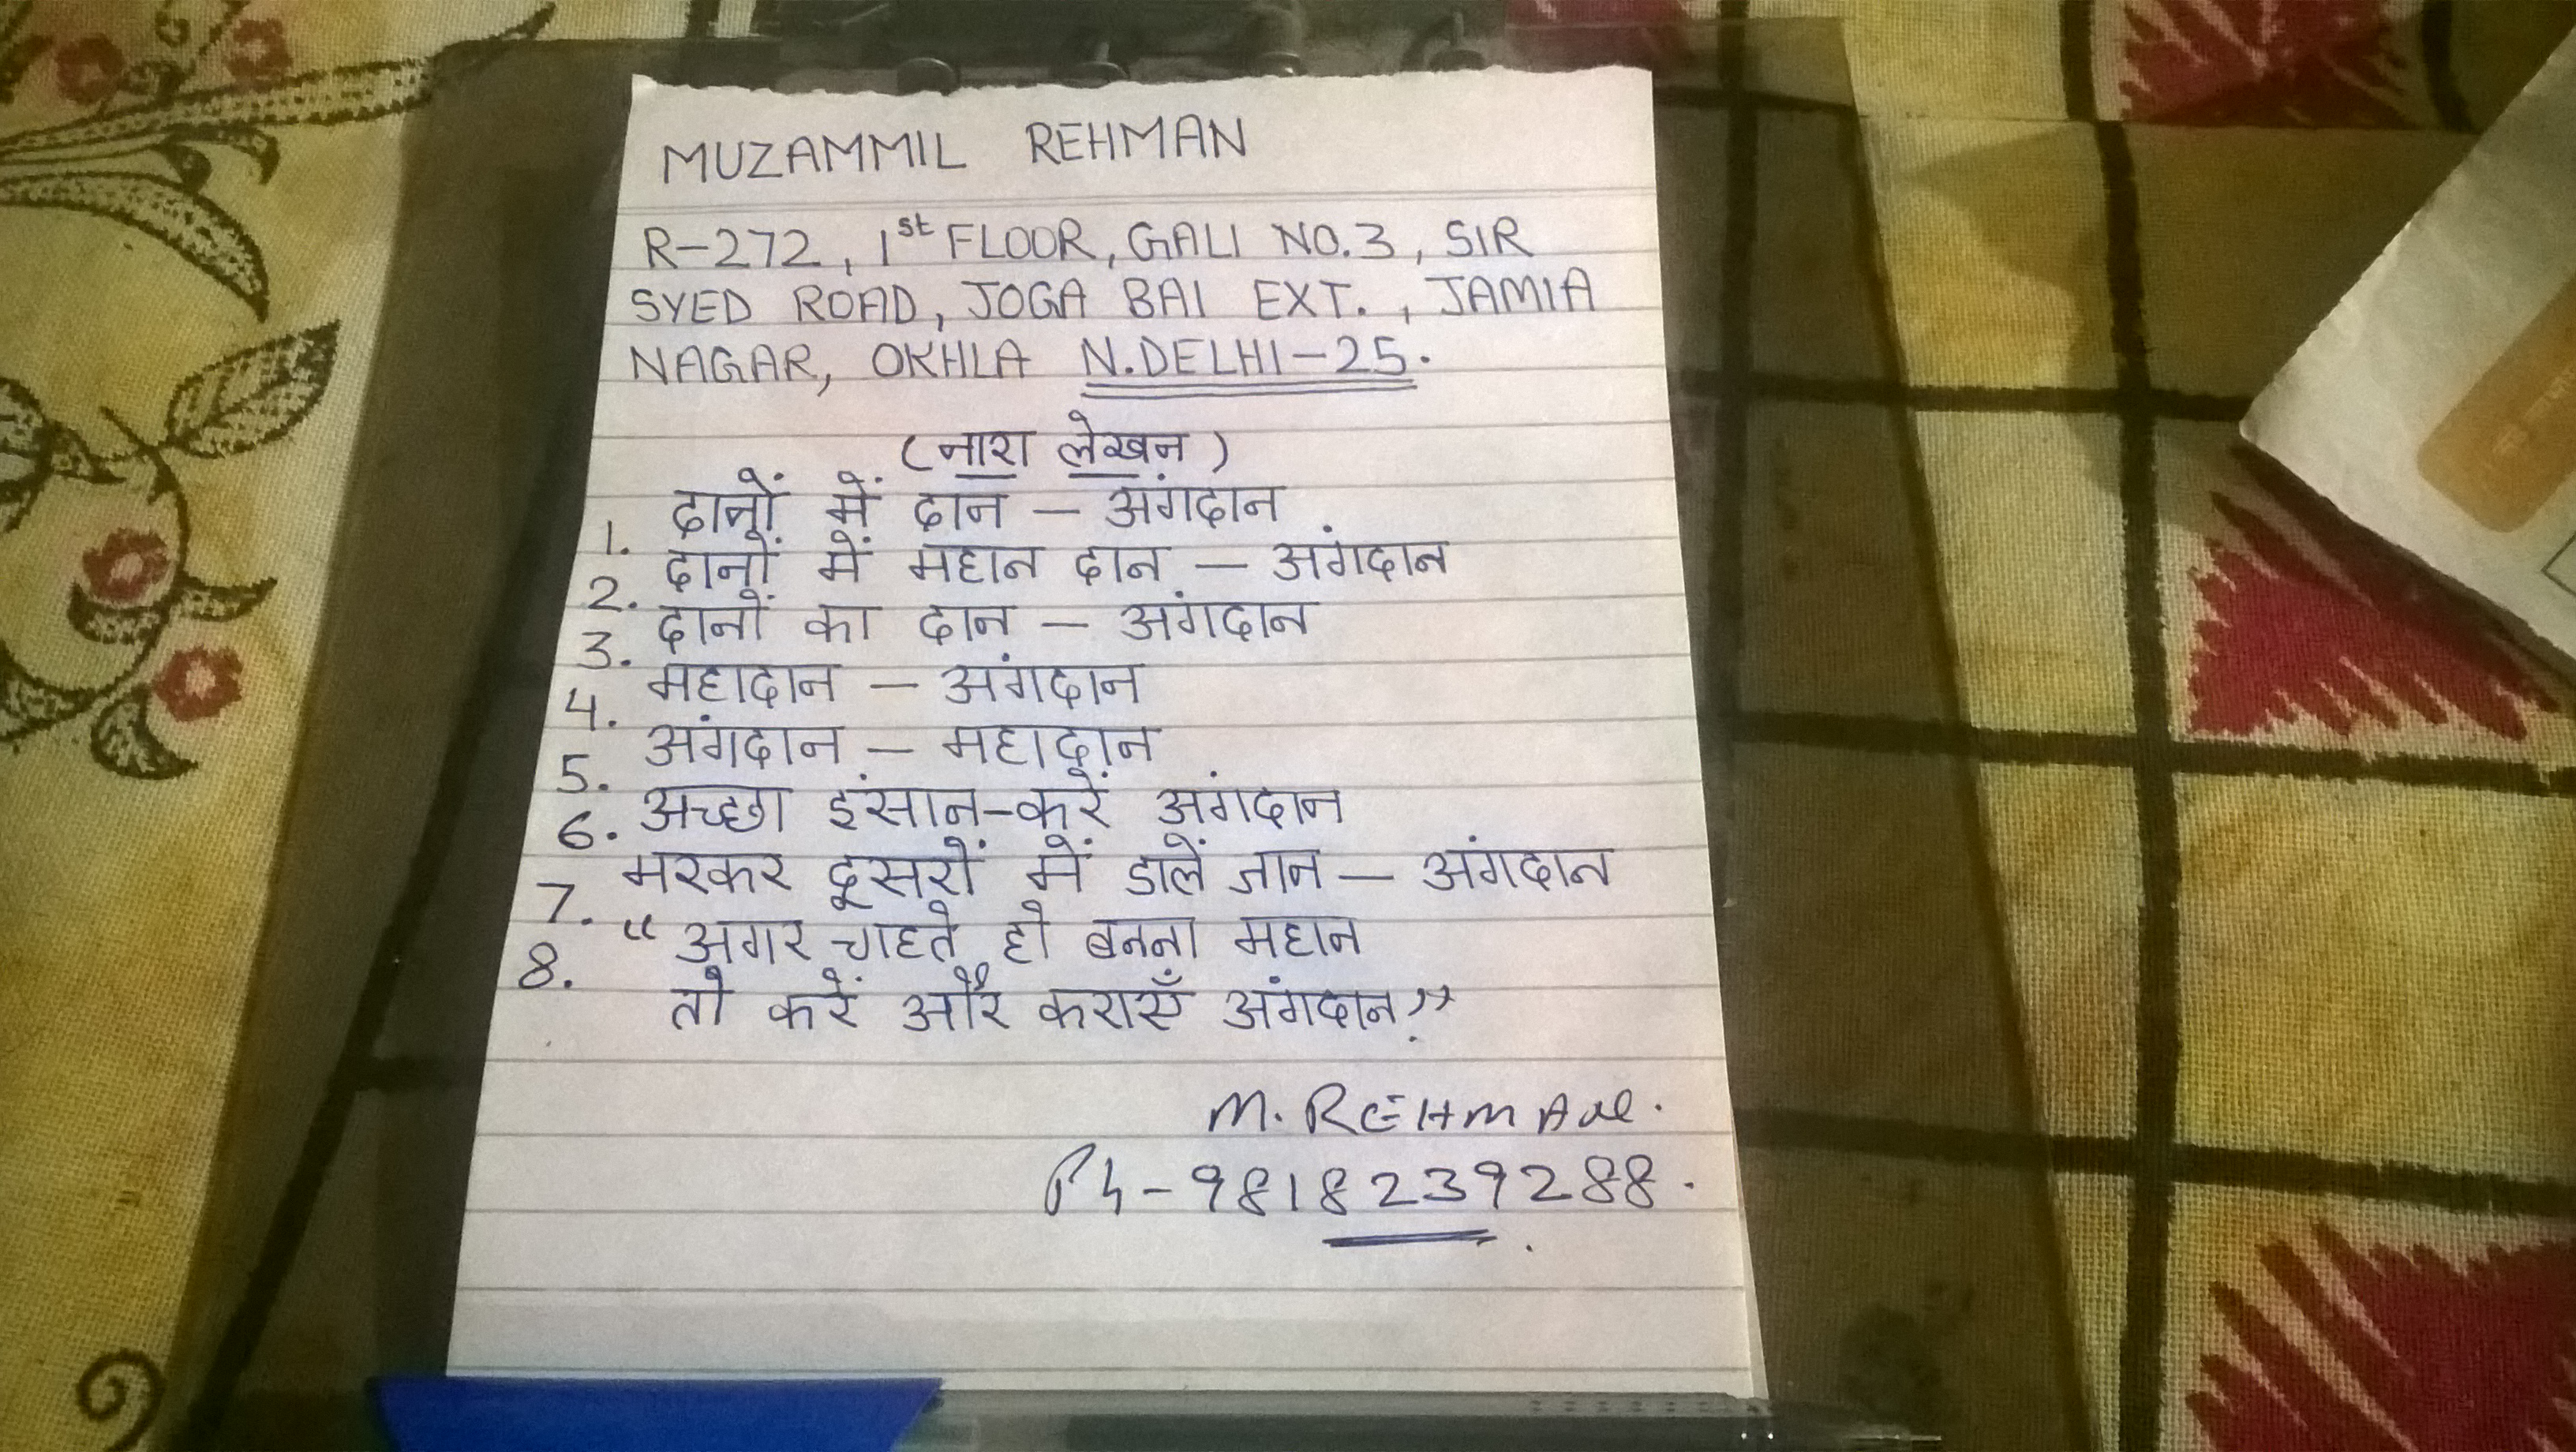 MUZAMMIL REHMAN
R-272, 1st FLOOR, GALI NO.3, SIR
SYED ROAD, JOGA BAI EXT., JAMIA
NAGAR, OKHLA N.DELHI-25.
(नारा लेखन)
1. दानों में दान – अंगदान
2. दानों में महान दान – अंगदान
3. दानों का दान – अंगदान
4. महादान – अंगदान
5. अंगदान – महादान
6. अच्छा इंसान-करें अंगदान
7. मरकर दूसरों में डालें जान – अंगदान
8. “अगर चाहते हो बनना महान
तो करें और कराएँ अंगदान।”
M. REHMAN.
Ph-9818239288.